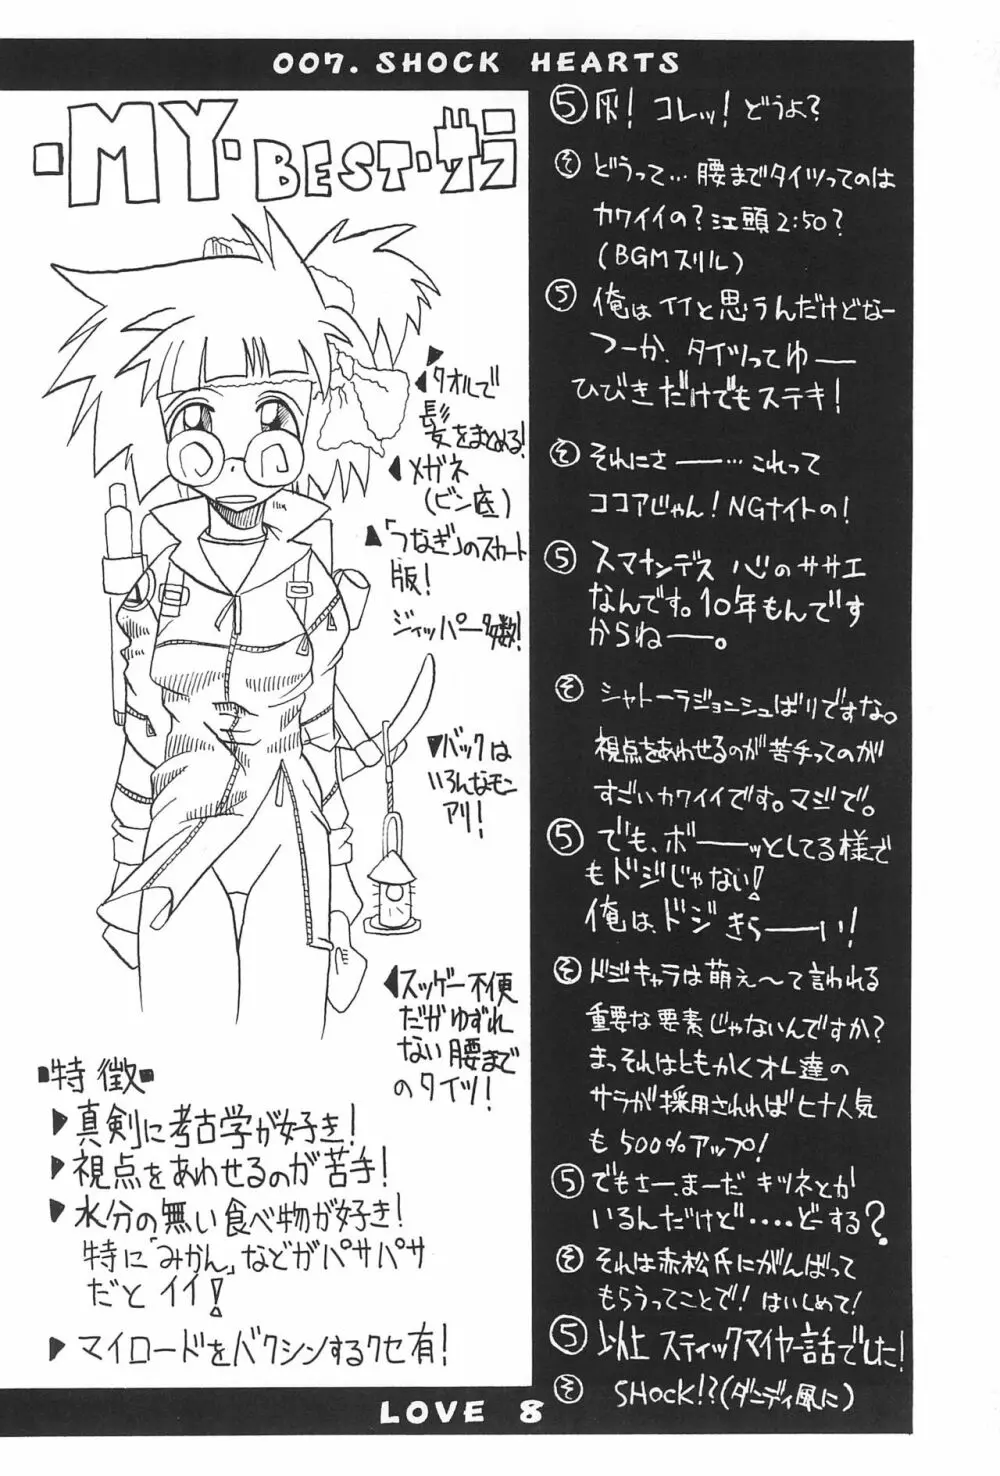 007. SHOCK HEARTS
・MY・BEST・サラ
タオルで
髪をまとめる!
メガネ
(ビン底)
「つなぎ」のスカート
版!
ジィッパー多数!
バックは
いろんなモン
アリ!
スッゲー不便
だがゆずれ
ない腰まで
のタイツ!
・特徴・
真剣に考古学が好き!
視点をあわせるのが苦手!
水分の無い食べ物が好き!
特に「みかん」などがパサパサ
だとイイ!
マイロードをバクシンするクセ有!
⑤灰! コレッ! どうよ?
そ どうって…腰までタイツってのは
カワイイの?江頭2:50?
(BGMスリル)
⑤ 俺はイイと思うんだけどなー
つーか、タイツってゆー
ひびきだけでもステキ!
そ それにさー…これって
ココアじゃん!NGナイトの!
⑤ スマナンデス 心のササエ
なんです。10年もんです
からねー。
そ シャトーラジョニシュばりですな。
視点をあわせるのが苦手ってのが
すごいカワイイです。マジで。
⑤ でも、ボーッとしてる様で
もドジじゃない!
俺は、ドジきらーい!
そ ドジキャラは萌え〜て言われる
重要な要素じゃないんですか?
まっそれはともかくオレ達の
サラが採用されればヒナ人気
も500%アップ!
⑤ でもさー、まーだ キツネとか
いるんだけど・・・・どーする?
そ それは赤松氏にがんばって
もらうってことで! はいしめて!
⑤ 以上 スティックマイヤー話でした!
そ SHOCK!?(ダンディ風に)
LOVE 8